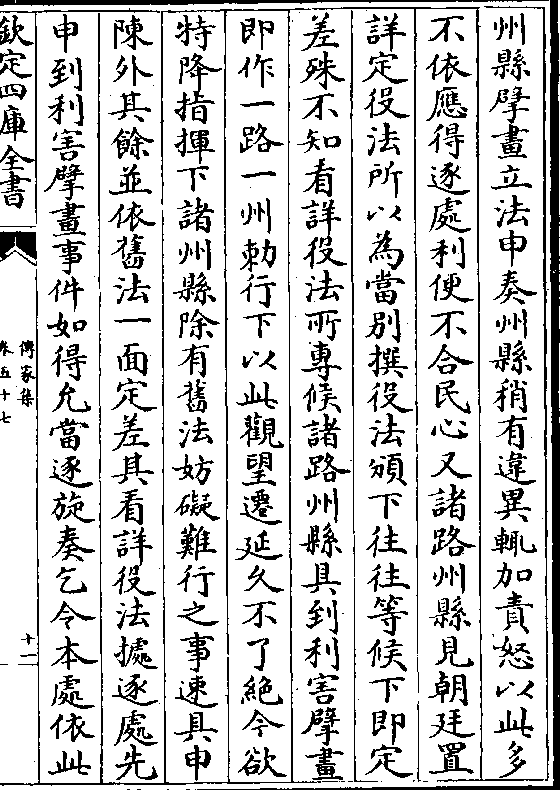 州縣擘畫立法申奏州縣稍有違異輒加責怒以此多
不依應得逐處利便不合民心又諸路州縣見朝廷置
詳定役法所以為當別撰役法頒下往往等候下即定
差殊不知看詳役法所專候諸路州縣具到利害擘畫
即作一路一州勅行下以此觀望遷延久不了絕今欲
特降指揮下諸州縣除有舊法妨礙難行之事速具申
陳外其餘並依舊法一面定差其看詳役法據逐處先
申到利害擘畫事件如得允當逐旋奏乞令本處依此
欽定四庫全書
傳家集
卷五十七
十一